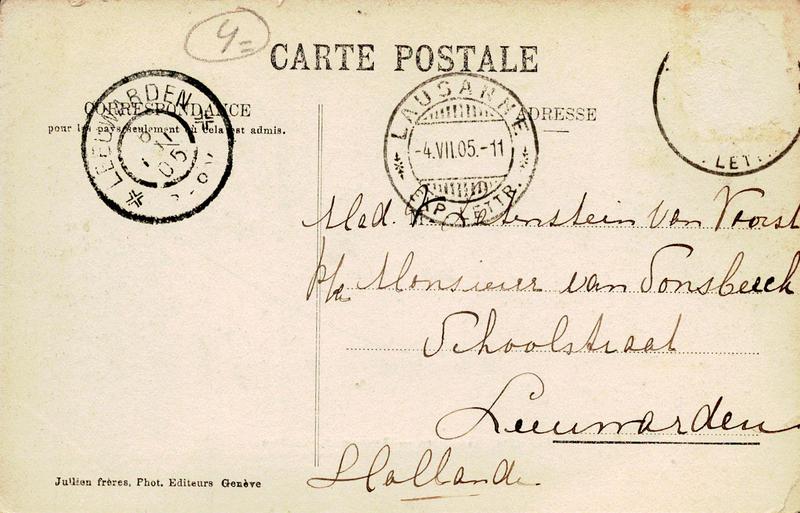 4=
CARTE POSTALE
CORRESPONDANCE
pour les pays seulement où cela est admis.
ADRESSE
LEEUWARDEN
05
LAUSANNE
-4.VII.05.-11
EXP. LETTR.
LET
Mad. van Voorst
Monsieur van Sonsbeeck
Schoolstraat
Leeuwarden
Hollande.
Jullien frères, Phot. Editeurs Genève